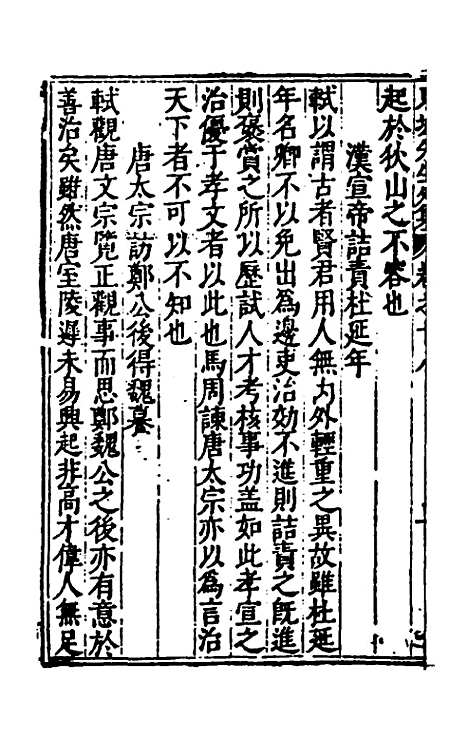 起於狄山之不容也
漢宣帝詰責杜延年
軾以謂古者賢君用人無内外輕重之異故雖杜延
年名卿不以免出為邊吏治効不進則詰責之既進
則褒賞之所以歷試人才考核事功盖如此孝宣之
治優于孝文者以此也馬周諫唐太宗亦以為言治
天下者不可以不知也
唐太宗訪鄭公後得魏謩
軾觀唐文宗覽正觀事而思鄭魏公之後亦有意於
善治矣雖然唐室陵遲未易興起非高才偉人無足